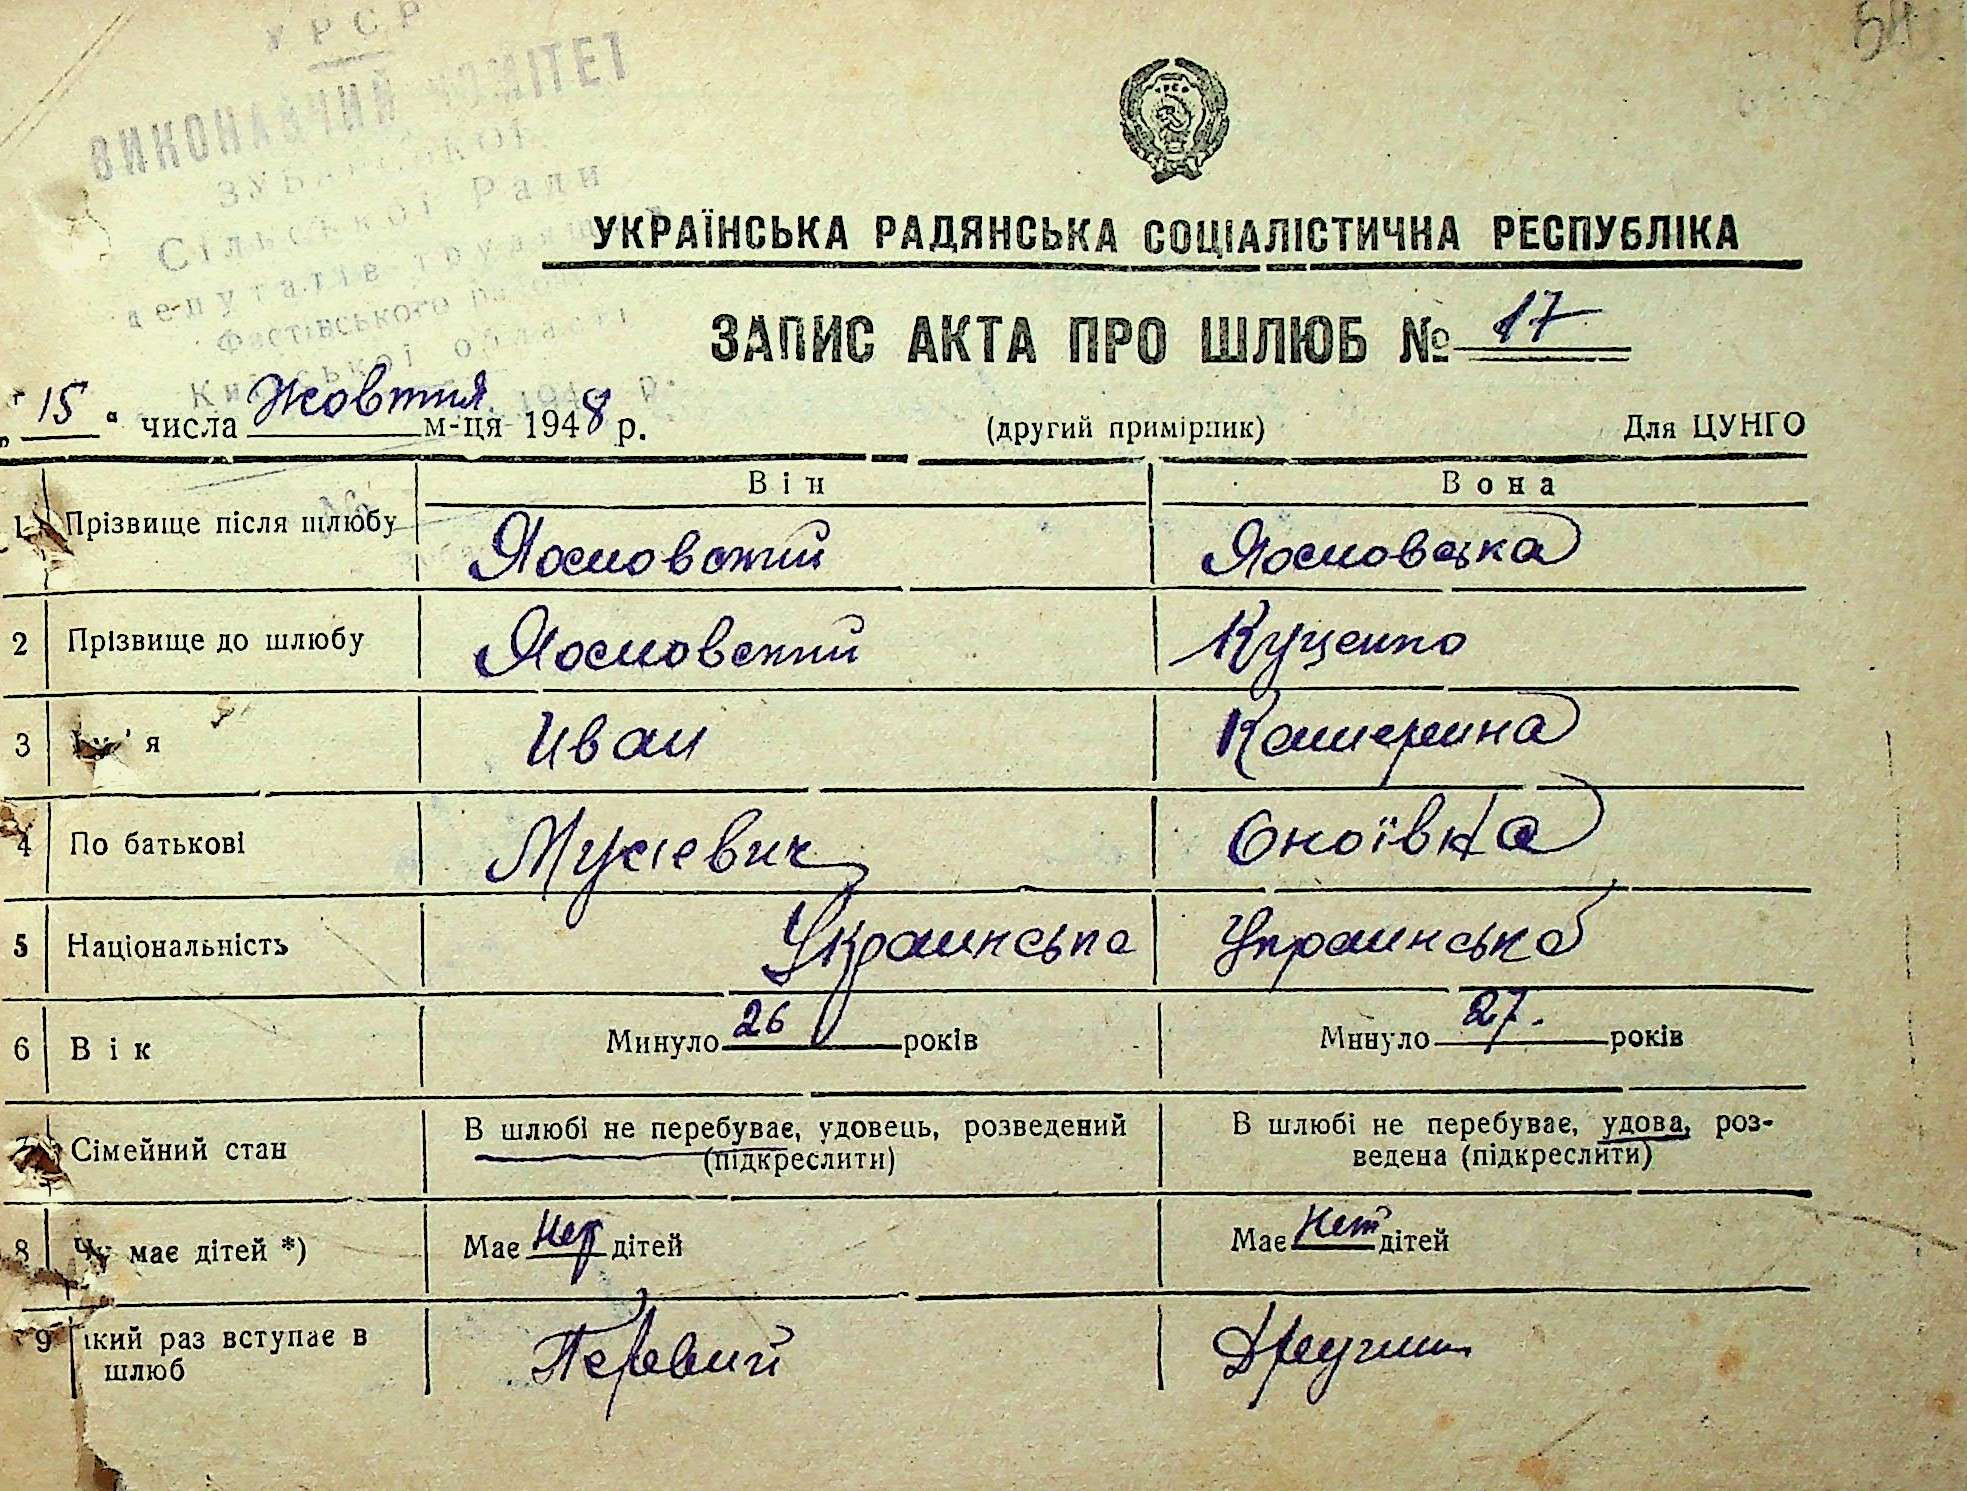 УРСР
ВИКОНАВЧИЙ КОМІТЕТ
Сільської Ради
депутатів трудящих
Фастівського району
Київської області
УКРАЇНСЬКА РАДЯНСЬКА СОЦІАЛІСТИЧНА РЕСПУБЛІКА
ЗАПИС АКТА ПРО ШЛЮБ № 17
„15“ числа Жовтня м-ця 1948 р. (другий примірник) Для ЦУНГО
Він Вона
1 Прізвище після шлюбу
2 Прізвище до шлюбу Куценко
3 Ім'я Иван Катерина
4 По батькові Мусіевич
5 Національність Украинська Украинська
6 Вік Минуло 26 років Минуло 27. років
7 Сімейний стан В шлюбі не перебуває, удовець, розведений В шлюбі не перебуває, удова, роз-
(підкреслити) ведена (підкреслити)
8 Чи має дітей *) Має нет дітей Має нет дітей
9 який раз вступає в Первий
шлюб